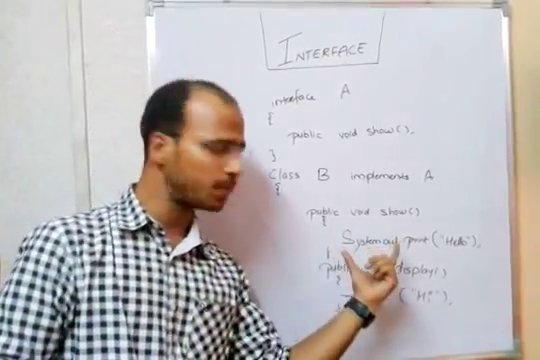 INTERFACE
interface A
{
public void show();
}
Class B implements A
{
public void show()
{
System.out.print("Hello");
}
public display()
{
("Hi");